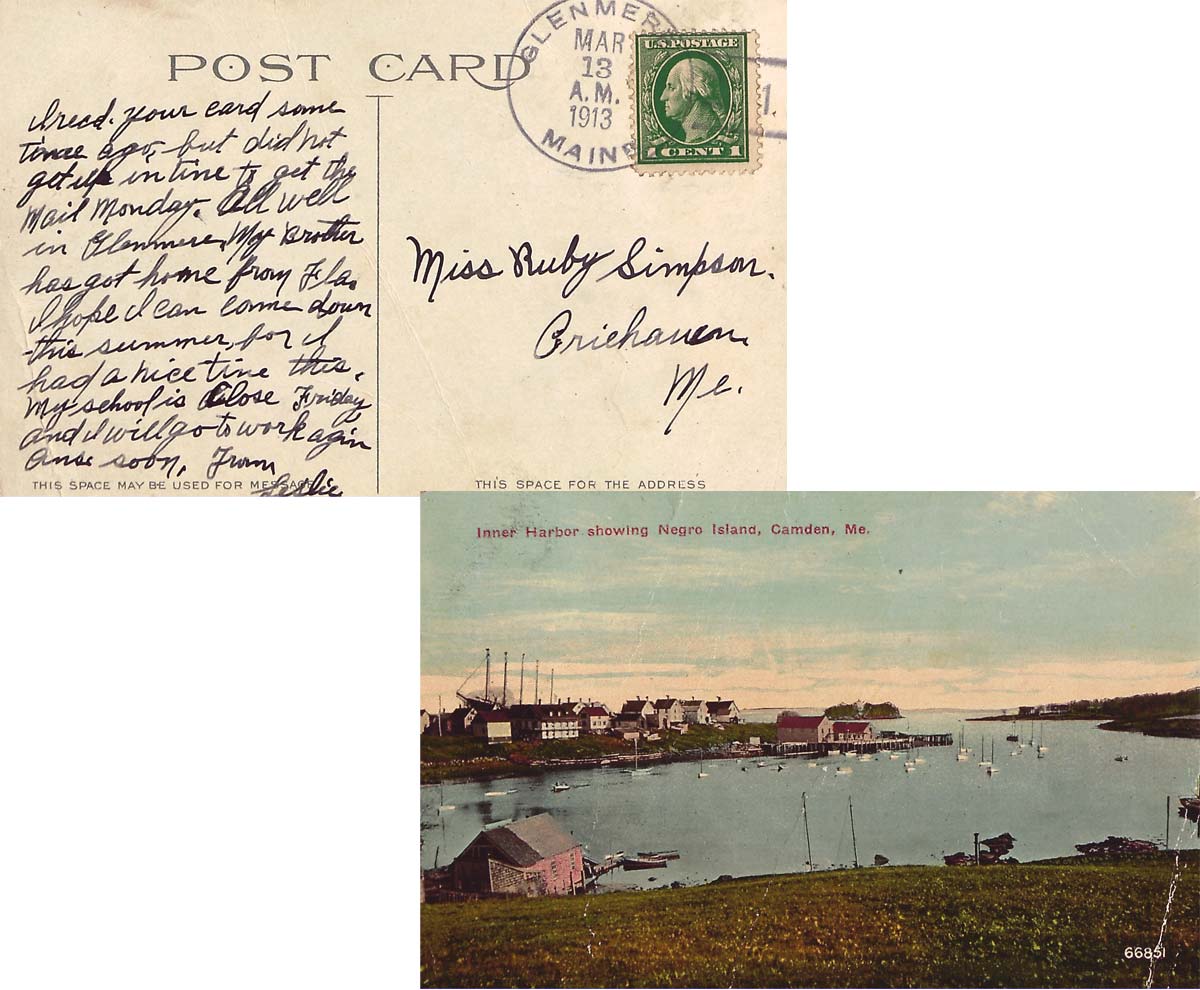 POST CARD
GLENMERE
MAR
13
A.M.
1913
MAINE
1.
U.S. POSTAGE
1 CENT 1
I recd. your card some
time ago, but did not
get up in tine to get the
Mail Monday. All well
in Glenmere. My Brother
has got home from Fla.
I hope I can come down
this summer, for I
had a nice tine this.
My school is Close Friday
and I will go to work agin
soon, From
Leslie
THIS SPACE MAY BE USED FOR MESSAGE
Miss Ruby Simpson.
Criehaven.
Me.
THIS SPACE FOR THE ADDRESS
Inner Harbor showing Negro Island, Camden, Me.
66851